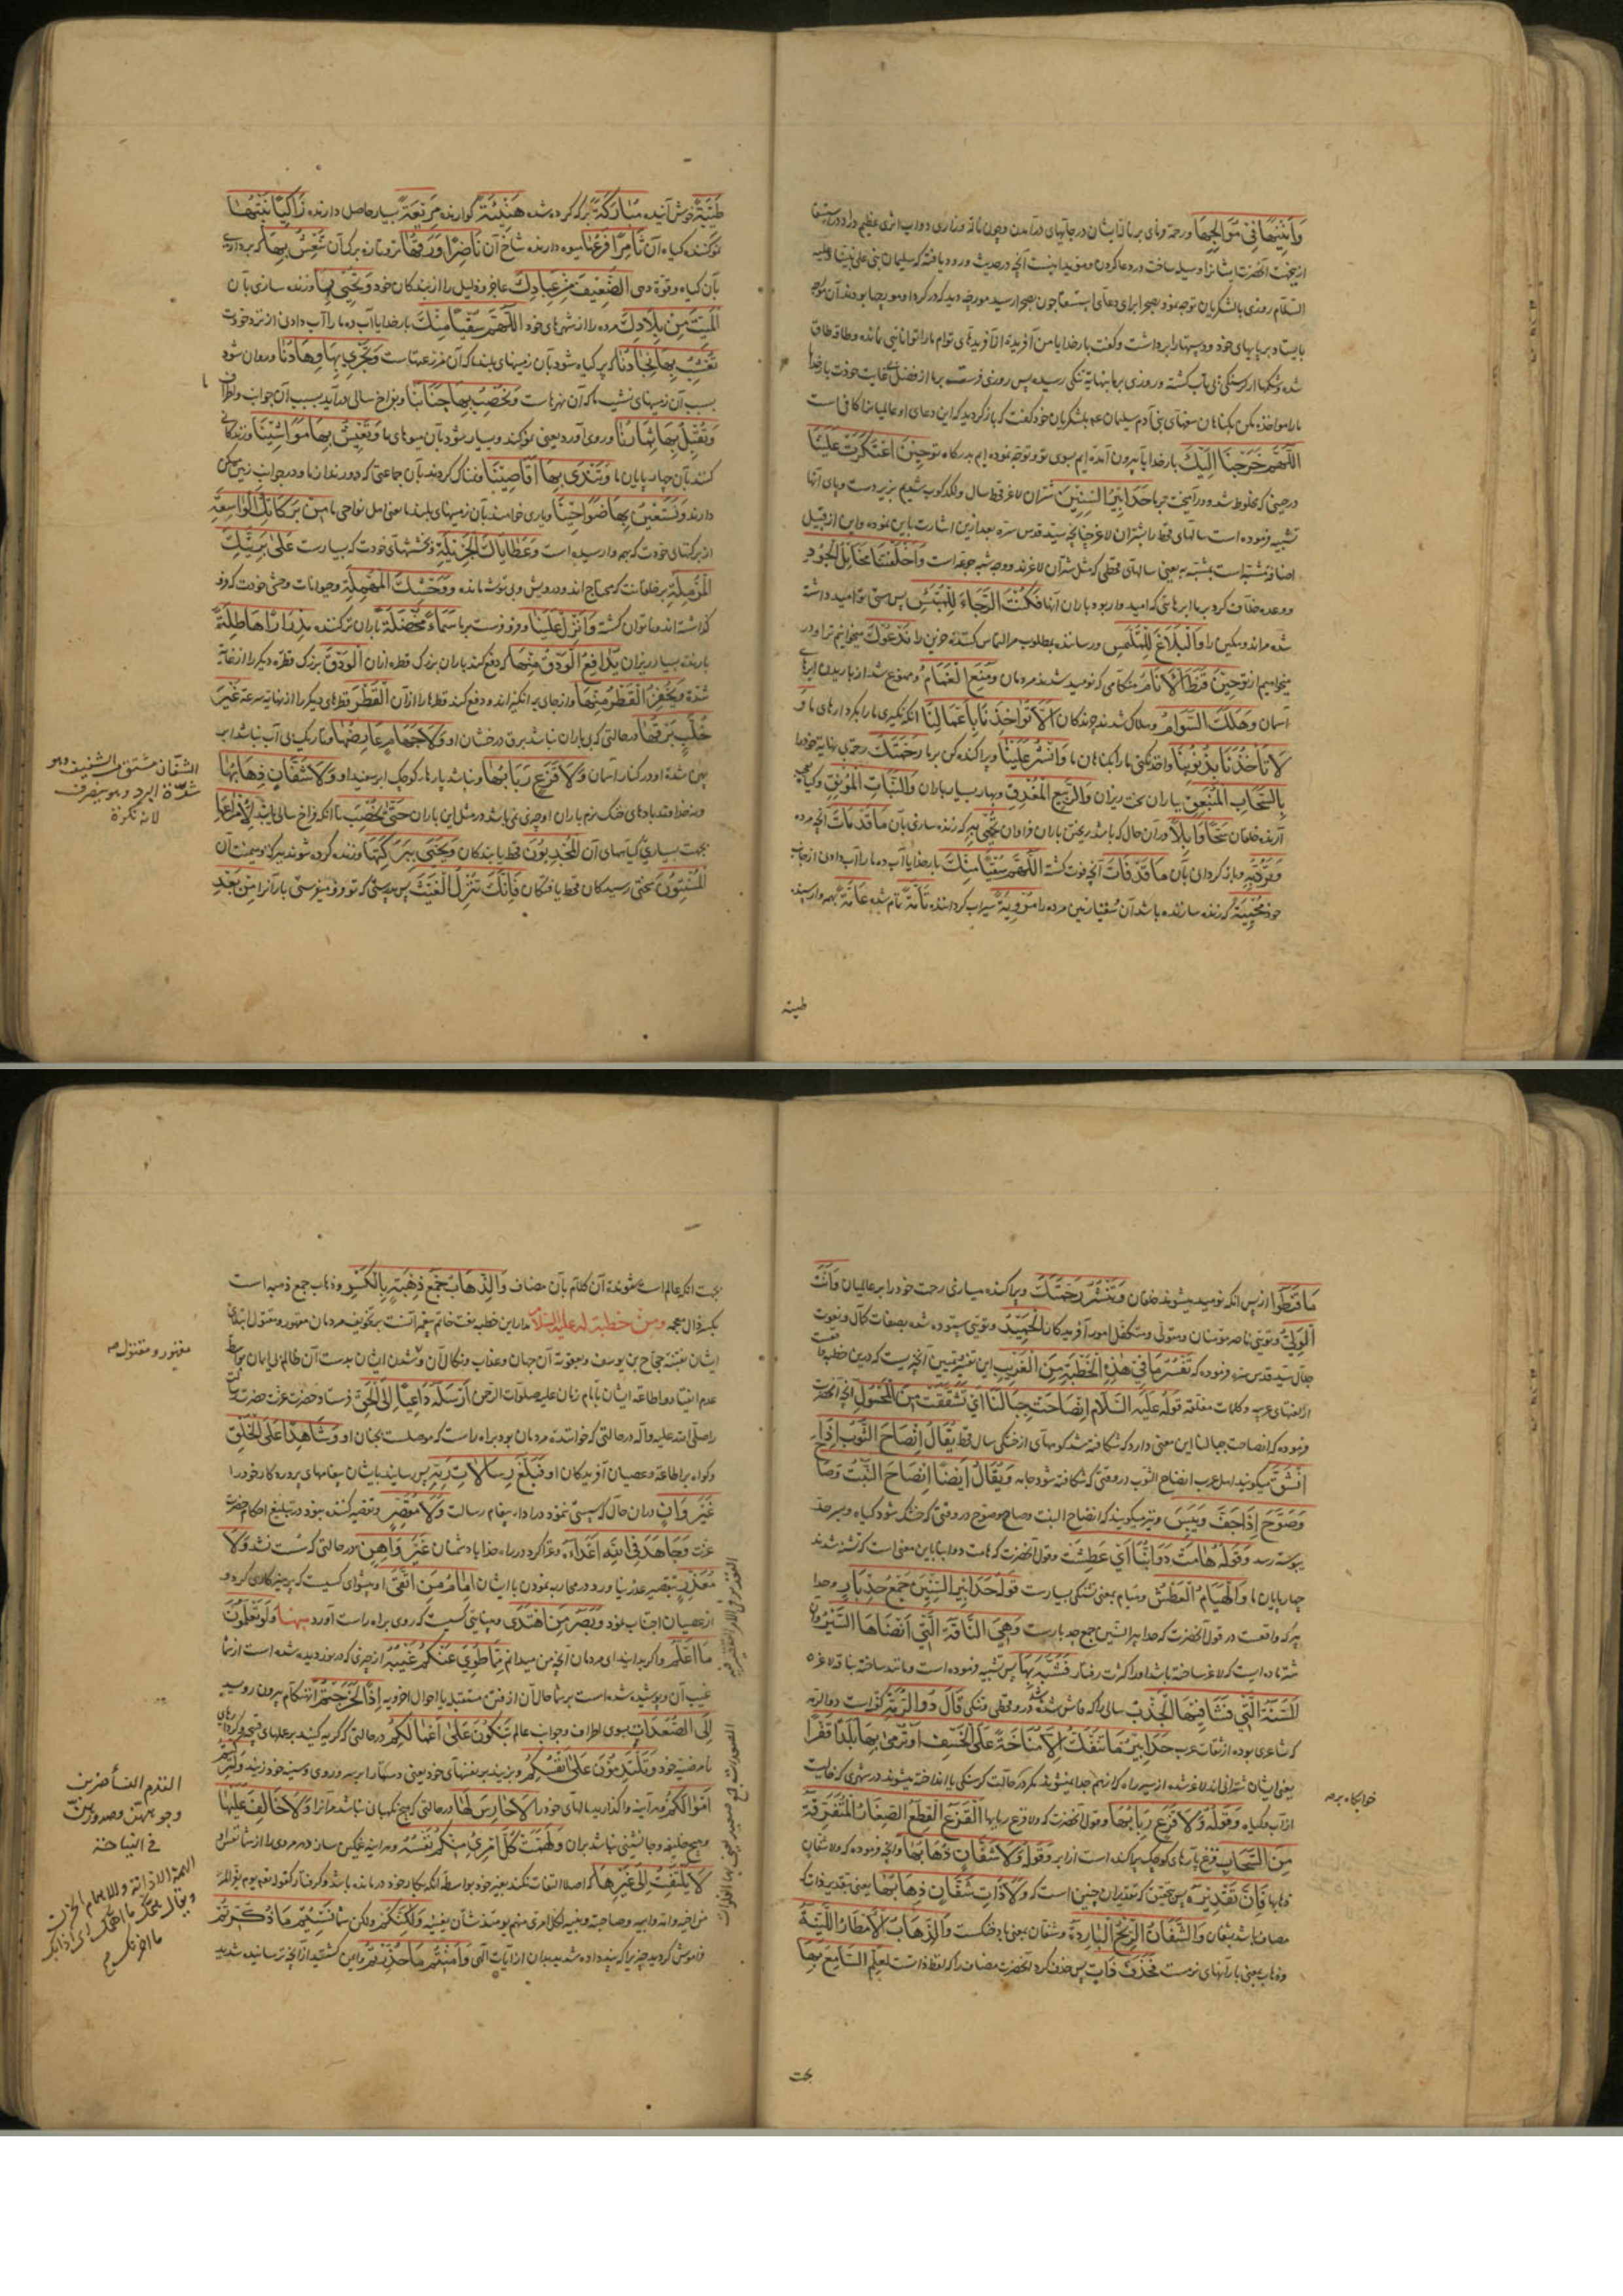 وَاَنِينَهَا فِي مَوَالِجِهَا و رحمة نمای بر نالهٔ ایشان در جایهای درآمدن و چون ناله و زاری دواب اثری عظیم دارد در استسقا
از اینجهت آنحضرت ایشانرا وسیله ساخت در دعا کردن و مؤید اینست آنچه در حدیث ورود یافته که سلیمان نبی علی نبینا و علیه
السلام روزی با لشکریان توجه نمود بصحرا برای دعای استسقا چون بصحرا رسید مورچه دید که
بایستاد بر پایهای خود و دستها را برداشت و گفت بار خدایا من آفریدهٔ از آفریدهای توام ما را توانایی نمانده و طاقه طاق
شده و روزی بر ما بنهایة تنکی رسیده پس روزی فرست بر ما از فضل بی غایت خودت بار خدایا
ما را مؤاخذه مکن بگناهان بنی آدم سلیمان ع م بلشکریان خود گفت که باز گردید که این دعای او عالمیانرا کافی است
اَللّٰهُمَّ خَرَجْنَا اِلَيْكَ بار خدایا بیرون آمده ایم بسوی تو و توجه نموده ایم بدرگاه تو حِينَ اعْتَكَرَتْ عَلَيْنَا
در حینی که مخلوط شده و درآمیخت بر ما حَدَابِيرُ السِّنِينَ شتران لاغر قحط سال
تشبیه فرموده است سالهای قحط را بشتران لاغر چنانچه سید قدس سره بعد ازین اشارت باین نموده و این از قبیل
اضافهٔ مشبه است بمشبه به یعنی سالهای قحطی که مثل شتران لاغرند و وَاَخْلَفَتْنَا مَخَايِلُ الْجُودِ
و وعده خلاف کرد بر ما ابرهائی که امیدوار بود باران آنها فَكُنْتَ الرَّجَاءَ لِلْمُبْتَئِسِ پس هستی تو امید داشته
شده مر اندوهگین را وَالْبَلَاغَ لِلْمُلْتَمِسِ و رساننده بمطلوب مر التماس کننده را نَدْعُوكَ میخوانیم ترا و در
میخواهیم از تو حِينَ قَنَطَ الْاَنَامُ هنگامی که نومید شدند مردمان وَمُنِعَ الْغَمَامُ و ممنوع شد از باریدن ابرهای
آسمان وَهَلَكَ السَّوَامُ و هلاک شدند چرندگان اَلَّا تُؤَاخِذَنَا بِاَعْمَالِنَا آنکه نگیری ما را بکردارهای ما وَ
لَا تَأْخُذَنَا بِذُنُوبِنَا و اخذ نکنی ما را بگناهان ما وَانْشُرْ عَلَيْنَا و پراکنده کن بر ما رَحْمَتَكَ رحمة بی نهایة خود را
بِالسَّحَابِ الْمُنْبَعِقِ بباران سخت ریزان وَالرَّبِيعِ الْمُغْدِقِ و بهار بسیار باران وَالنَّبَاتِ الْمُونِقِ و گیاه بعجب
آرنده خلقان سَحًّا وَابِلًا در آن حال که باشد ریختن باران فراوان تُحْيِي بِهِ که زنده سازی بآن مَا قَدْ مَاتَ آنچه مرده
وَتَرُدُّ بِهِ و باز گردانی بآن مَا قَدْ فَاتَ آنچه فوت گشته اَللّٰهُمَّ سُقْيًا مِنْكَ بار خدایا آب ده ما را آب دادن از جانب
خود مُحْيِيَةً که زنده سازنده باشد آن سقیا زمین مرده را مُرْوِيَةً سیراب گرداننده تَامَّةً تمام شده عَامَّةً بهمه وا رسیده
طَيِّبَةً
طَيِّبَةً خوش آینده مُبَارَكَةً برکه کرده شده هَنِيئَةً گوارنده مَرِيعَةً بسیار حاصل دارنده زَاكِيًا نَبْتُهَا
نمو کننده گیاه آن ثَامِرًا فَرْعُهَا میوه دارنده شاخ آن نَاضِرًا وَرَقُهَا تر و تازه برک آن تُنْعِشُ بِهَا که برداری
بآن گیاه و قوة دهی اَلضَّعِيفَ مِنْ عِبَادِكَ عاجز و ذلیل را از بندگان خود وَتُحْيِي بِهَا و زنده سازی بآن
اَلْمَيِّتَ مِنْ بِلَادِكَ مرده را از شهرهای خود اَللّٰهُمَّ سُقْيًا مِنْكَ بار خدایا آب ده ما را آب دادن از نزد خودت
تُعْشِبُ بِهَا نِجَادُنَا که پر گیاه شود بآن زمینهای بلند ما که آن مزرعهاست وَتَجْرِي بِهَا وِهَادُنَا و روان شود
بسبب آن زمینهای نشیب ما که آن نهرهاست وَتُخْصِبُ بِهَا جَنَابُنَا و بفراخ سالی درآید بسبب آن جوانب و اطراف ما
وَتُقْبِلُ بِهَا ثِمَارُنَا و روی آورد یعنی نمو کند و بسیار شود بآن میوهای ما وَتَعِيشُ بِهَا مَوَاشِينَا و زندگانی
کنند بآن چارپایان ما وَتَنْدَى بِهَا اَقَاصِينَا و نمناک گردند بآن جماعتی که دورند از ما و در جوانب زمین مسکن
دارند وَتَسْتَعِينُ بِهَا ضَوَاحِينَا و یاری خواهند بآن زمینهای بلند ما یعنی اهل نواحی ما مِنْ بَرَكَاتِكَ الْوَاسِعَةِ
از برکتهای خودت که بهمه وا رسیده است وَعَطَايَاكَ الْجَزِيلَةِ و بخششهای خودت که بسیارست عَلٰى بَرِيَّتِكَ
الْمُرْمِلَةِ بر خلقانت که محتاج اند و درویش و بی توشه مانده وَوَحْشِكَ الْمُهْمَلَةِ و حیوانات وحشی خودت که فرو
گذاشته اند و ناتوان گشته وَاَنْزِلْ عَلَيْنَا و فرو فرست بر ما سَمَاءً مُخْضِلَةً باران تر کننده مِدْرَارًا هَاطِلَةً
بارنده بسیار ریزان يُدَافِعُ الْوَدْقُ مِنْهَا که دفع کند باران بزرک قطره از آن اَلْوَدْقَ بزرک قطرهٔ دیگر را از غایة
شدة وَيَحْفِزُ الْقَطْرُ مِنْهَا و از جای برانگیزاند و دفع کند قطرها از آن اَلْقَطْرَ قطرهای دیگر را از نهایة سرعة غَيْرَ
خُلَّبٍ بَرْقُهَا در حالتی که بی باران نباشد برق درخشان او وَلَا جَهَامٍ عَارِضُهَا و نه تاریک بی آب نباشد ابر
پهن شده او در کنار آسمان وَلَا قَزَعٍ رَبَابُهَا و نباشد پاره پاره کوچک ابر سفید او وَلَا شَفَّانٍ ذِهَابُهَا
و نه خداوند بادهای خنک نرم باران او حَتّٰى يُخْصِبَ تا آنکه فراخ سالی یابند لِاِمْرَاعِهَا
بجهت بسیاری گیاههای آن اَلْمُجْدِبُونَ قحط یابندگان وَيَحْيَى بِبَرَكَتِهَا و زنده کرده شوند ببرکة و میمنت آن
اَلْمُسْنِتُونَ بسختی رسیدگان قحط یافتگان فَاِنَّكَ تُنْزِلُ الْغَيْثَ پس بدرستی که تو فرو میفرستی باران را مِنْ بَعْدِ
الشفّان مشتق من الشفيف وهو
شدّة البرد وهو ينصرف
لانه نكرة
مَا قَنَطُوا از پس آنکه نومید میشوند خلقان وَتَنْشُرُ رَحْمَتَكَ و پراکنده میسازی رحمت خود را بر عالمیان وَاَنْتَ
الْوَلِيُّ و توئی ناصر مؤمنان و متولی و متکفل امور آفریدگان اَلْحَمِيدُ و توئی ستوده شده بصفات کمال و نعوت
جلال سید قدس سره فرموده که تَفْسِيرُ مَا فِي هٰذِهِ الْخُطْبَةِ مِنَ الْغَرِيبِ این تفسیر آنچیزیست که درین خطبه واقعست
از لغتهای غریبه و کلمات مغلقه قَوْلُهُ عَلَيْهِ السَّلَامُ اِنْصَاحَتْ جِبَالُنَا اَيْ تَشَقَّقَتْ مِنَ الْمُحُولِ آنچه آنحضرت
فرموده که انصاحت جبالنا این معنی دارد که شکافته شد کوههای ما از خشکی سال قحط يُقَالُ اِنْصَاحَ الثَّوْبُ اِذَا
انْشَقَّ میگویند اهل عرب انصاح الثوب در وقتی که شکافته شود جامه وَيُقَالُ اَيْضًا اِنْصَاحَ النَّبْتُ وَصَاحَ
وَصَوَّحَ اِذَا جَفَّ وَيَبِسَ و نیز میگویند که انصاح النبت و صاح و صوح در وقتی که خشک شود گیاه و بسرحد
یبوسة رسد وَقَوْلُهُ هَامَتْ دَوَابُّنَا اَيْ عَطِشَتْ و قول آنحضرت که هامت دوابنا باین معنی است که تشنه شدند
چهارپایان ما وَالْهُيَامُ الْعَطَشُ و هیام بمعنی تشنگی بسیارست قَوْلُهُ حَدَابِيرُ السِّنِينَ جَمْعُ حِدْبَارٍ و حدا
بیر که واقعست در قول آنحضرت که حدابیر السنین جمع حدبارست وَهِيَ النَّاقَةُ الَّتِي اَنْضَاهَا السَّيْرُ و آن
شتر ماده ایست که لاغر ساخته باشد او را کثرت رفتار فَشَبَّهَ بِهَا پس تشبیه فرموده است و مانند ساخته بناقهٔ لاغره
السَّنَةَ الَّتِي فَشَا فِيهَا الْجَدْبُ سالی را که فاش شده باشد در او قحطی و تنگی قَالَ ذُو الرُّمَّةِ گفته است ذو الرمه
که شاعری بوده از ثقات عرب حَدَابِيرُ مَا تَنْفَكُّ اِلَّا مُنَاخَةً عَلَى الْخَسْفِ اَوْ نَرْمِي بِهَا بَلَدًا قَفْرًا
یعنی ایشان شترانی اند لاغر شده از سیر راه که از هم جدا نمیشوند مگر در حالت گرسنگی یا انداخته میشوند در شهری که خالیست
از آب و گیاه وَقَوْلُهُ وَلَا قَزَعٍ رَبَابُهَا و قول آنحضرت که و لا قزع ربابها اَلْقَزَعُ الْقِطَعُ الصِّغَارُ الْمُتَفَرِّقَةُ
مِنَ السَّحَابِ قزع پارهای کوچک پراکنده است از ابر وَقَوْلُهُ وَلَا شَفَّانٍ ذِهَابُهَا و آنچه فرموده که و لا شفان
ذهابها فَاِنَّ تَقْدِيرَهُ پس بتحقیق که تقدیر آن چنین است که وَلَا ذَاتِ شَفَّانٍ ذِهَابُهَا یعنی بتقدیر ذات که
مضاف باشد بشفان وَالشَّفَّانُ الرِّيحُ الْبَارِدَةُ و شفان بمعنی باد خنکست وَالذِّهَابُ الْاَمْطَارُ اللَّيِّنَةُ
و ذهاب بمعنی بارانهای نرمست فَحَذَفَ ذَاتِ پس حذف کرد آنحضرت مضاف را که لفظ ذاتست لِعِلْمِ السَّامِعِ بِهَا
بجهت
بجهت آنکه عالم است شنوندهٔ آن کلام بآن مضاف وَالذِّهَابُ جَمْعُ ذِهْبَةٍ بِالْكَسْرِ و ذهاب جمع ذهبه است
بکسر ذال معجمه ومن خطبة له عليه السلام مدار این خطبه بنعت خاتم پیغمبرانست بر تخویف مردمان
ایشان بفتنهٔ حجاج بن یوسف و بعقوبة آن جهان و عذاب و نکال آن
عدم انقیاد و اطاعة ایشان بامام زمان علیه صلوات الرحمن اَرْسَلَهُ دَاعِيًا اِلَى الْحَقِّ فرستاد حضرت عزت حضرت رسالت
را صلی الله علیه و آله در حالتی که خوانندهٔ مردمان بود براه راست که موصلست بجنان او وَشَاهِدًا عَلَى الْخَلْقِ
و گواه بر اطاعة و عصیان آفریدگان او فَبَلَّغَ رِسَالَاتِ رَبِّهِ پس رسانید بایشان پیغامهای پروردگار خود را
غَيْرَ وَانٍ در آن حال که سستی ننمود در ادای پیغام رسالت وَلَا مُقَصِّرٍ و تقصیر کننده نبود در تبلیغ احکام حضرت
عزت وَجَاهَدَ فِي اللّٰهِ اَعْدَاءَهُ و غزا کرد در راه خدا با دشمنان غَيْرَ وَاهِنٍ در حالتی که سست نشد وَلَا
مُعَذِّرٍ و بتقصیر عذر نیاورد در محاربه نمودن با ایشان اِمَامُ مَنِ اتَّقٰى او پیشوای کسیست که پرهیزکاری کرد و
از عصیان اجتناب نمود وَبَصَرُ مَنِ اهْتَدٰى و بینائی کسیست که روی براه راست آورد منها وَلَوْ تَعْلَمُونَ
مَا اَعْلَمُ و اگر بدانید ای مردمان آنچه من میدانم مِمَّا طُوِيَ عَنْكُمْ غَيْبُهُ از چیزی که در نوردیده شده است از شما
غیب آن و پوشیده شده است بر شما حال آن از فتن مستقبل یا احوال اخرویه اِذًا لَخَرَجْتُمْ آنهنگام بیرون روید
اِلَى الصُّعُدَاتِ بسوی اطراف و جوانب عالم تَبْكُونَ عَلٰى اَعْمَالِكُمْ در حالتی که گریه کنید بر عملهای قبیح و کردارهای
نامرضیهٔ خود وَتَلْتَدِمُونَ عَلٰى اَنْفُسِكُمْ و بزنید بر نفسهای خود یعنی دستها را بر سر و روی و سینهٔ خود زنید وَلَتَرَكْتُمْ
اَمْوَالَكُمْ و هر آینه واگذارید مالهای خود را لَا حَارِسَ لَهَا در حالتی که هیچ نگهبان نباشد مر آنرا وَلَا خَالِفَ عَلَيْهَا
و هیچ خلیفه و جانشینی نباشد بر آن وَلَهَمَّتْ كُلَّ امْرِئٍ مِنْكُمْ نَفْسُهُ و هر آینه غمگین سازد هر مردی را از شما نفس او
لَا يَلْتَفِتُ اِلٰى غَيْرِهَا که اصلا التفات نکند بغیر خود بواسطه آنکه بکار خود درمانده باشد و گرفتار کقوله تعالی یوم یفر المرء
من اخیه و امه و ابیه و صاحبته و بنیه لکل امرئ منهم یومئذ شأن یغنیه وَلٰكِنَّكُمْ و لکن شما نَسِيتُمْ مَا ذُكِّرْتُمْ
فراموش کردید چیزیرا که پند داده شدید بدان از آیات الهی وَاَمِنْتُمْ مَا حُذِّرْتُمْ و ایمن گشتید از آنچه ترسانیده شدید
التدم النساء ضربن
وجوههن وصدورهن
في النياحة